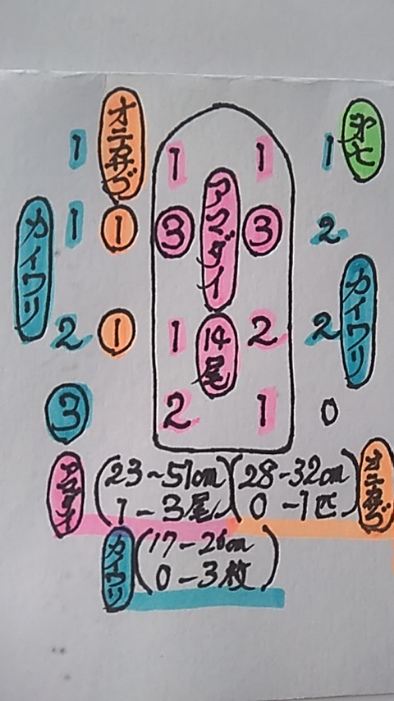 オニカサゴ
第七
1 1 1 1
カイワリ
アマダイ
1 ① ③ ③ 2
カイワリ
2 ① 1 2 2
14尾
③ 2 1 0
アマダイ (23~51cm 1-3尾)
(28-32cm 0-1匹) オニカサゴ
カイワリ (17-26cm 0-3枚)